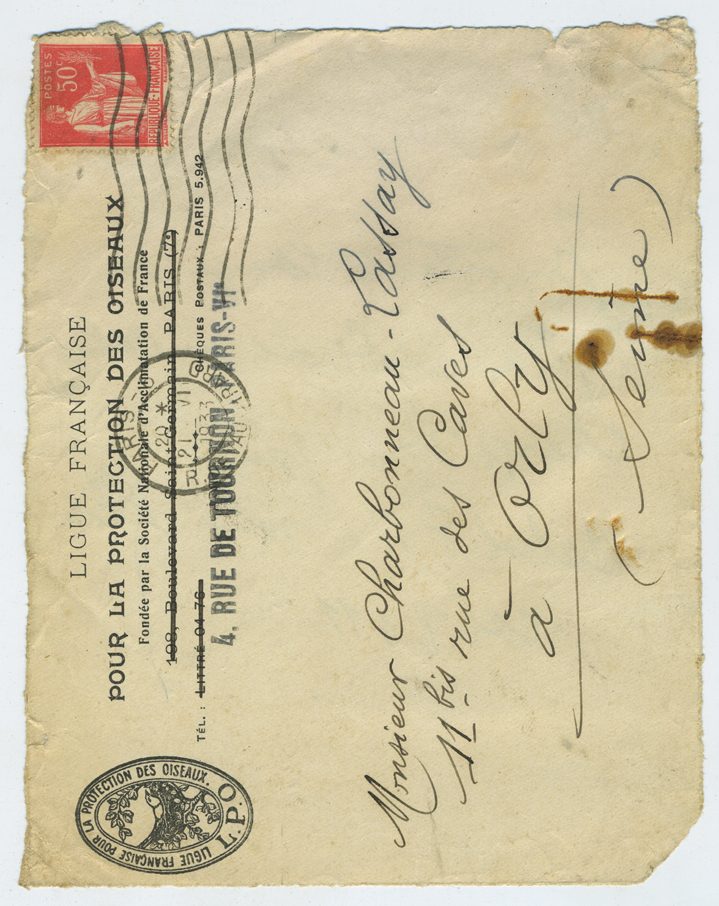 LIGUE FRANÇAISE
POUR LA PROTECTION DES OISEAUX
Fondée par la Société Nationale d'Acclimatation de France
198, Boulevard Saint-Germain, PARIS (7e)
TÉL. : LITTRÉ 04-76
CHÈQUES POSTAUX : PARIS 5.942
4, RUE DE TOURNON, PARIS-VIe
LIGUE FRANÇAISE POUR LA PROTECTION DES OISEAUX.
L.P.O
POSTES
50c
REPUBLIQUE-FRANÇAISE
PARIS
20 *
21 VI
1933
Monsieur Charbonneau-Lassay
11 bis rue des Caves
à Orly
(Seine)